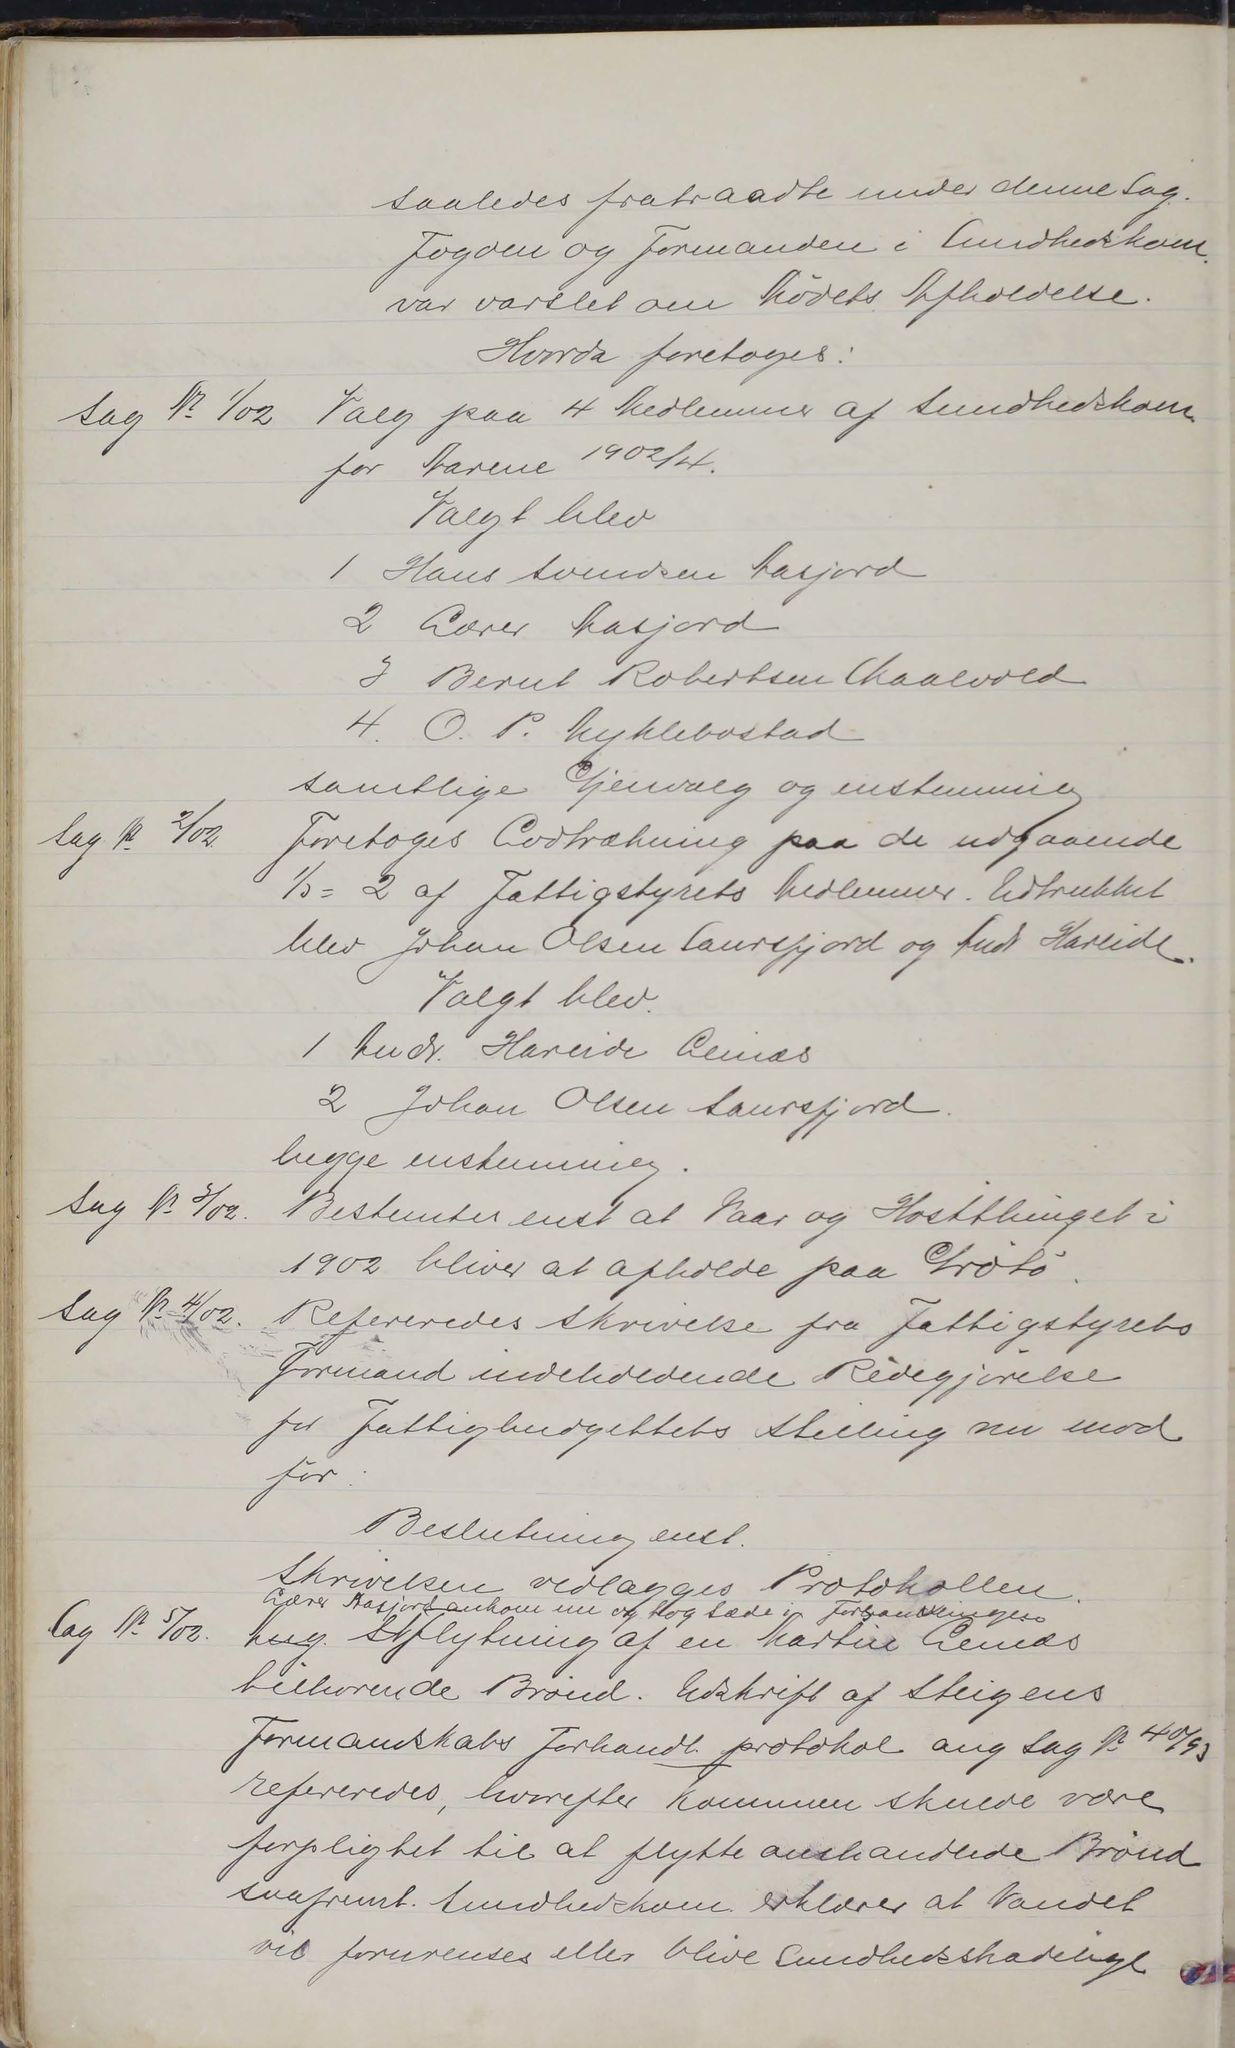 saaledes fratraadte under denne Sag.
Fogden og Formanden i Sundhedskom.
var varslet om Mödets Afholdelse.
Hvorda foretoges:
Sag № 1/02 Valg paa 4 Medlemmer af Sundhedskom
for Aarene 1902/4.
Valgt blev
1 Hans Svendsen Aasjord
2 Lærer Aasjord
3 Bernt Robertsen Maalvold
4. O. P. Myklebostad
samtlige Gjenvalg og enstemmig
Sag № 2/02 Foretoges Lodtrækning paa de udgaaende
1/3 = 2 af Fattigstyrets Medlemmer. Udtrukket
blev Johan Olsen Laursfjord og Andr Hareide.
Valgt blev.
1 Andr. Hareide Leines
2 Johan Olsen Saursfjord.
begge enstemmig.
Sag № 3/02. Bestemtes enst at Vaar og Hostthinget i
1902 bliver at afholde paa Gröto.
Sag № 4/02. Refereredes Skrivelse fra Fattigstyrets
Formand indeholdende Redegjörelse
for Fattigbudgettets Stilling nu mod
för.
Beslutning enst.
Skrivelsen vedlægges Protokollen.
Lærer Aasjord ankom nu og tog Sæde i Forsamlingen
Sag № 5/02. Ang. Afflytning af en Martin Leines
tilhorende Brönd. Udskrift af Steigens
Formandskabs Forhandl. protokol ang Sag № 40/93
refereredes, hvorefter Kommunen skulde være
forpligtet til at flytte omhandlede Brönd
saafremt. Sundhedskom. erklærer at Vandet
vil forurenses eller blive Sundhedsskadeligt